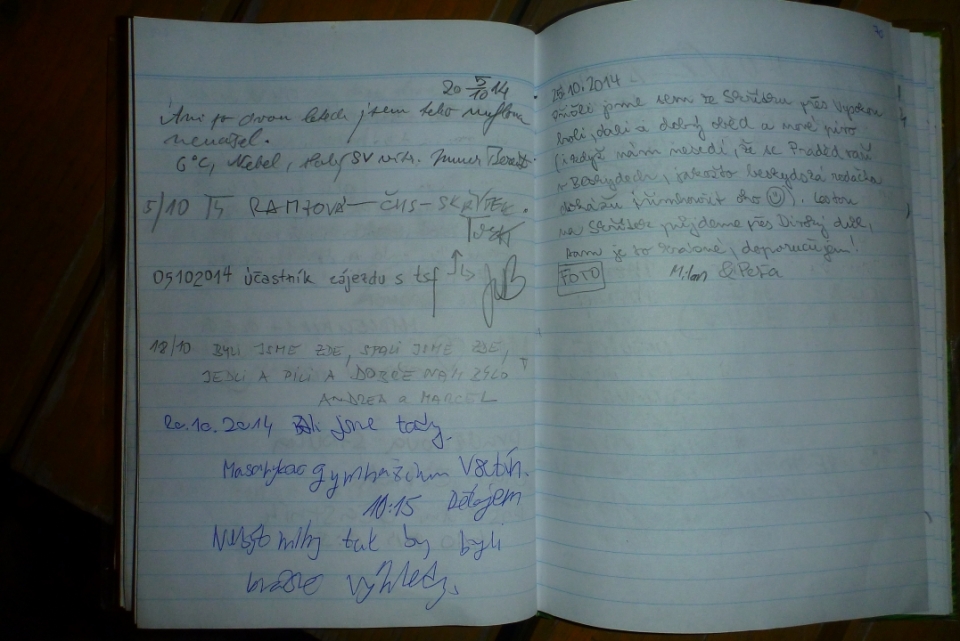 20 5/10 14
Ani po dvou letech jsem toho muflona
nenašel.
6°C, Nebel, slabý SV vítr.
5/10 RAMZOVÁ — ČHS — SKŘÍTEK.
05102014 účastník zájezdu s tsf
18/10 BYLI JSME ZDE, SPALI JSME ZDE,
JEDLI A PILI A DOBŘE NÁM BYLO
ANDREA a MARCEL
20.10.2014 Byli jsme tady.
Masarykovo gymnázium Vsetín.
10:15 Dětojem
Nebýt mlhy tak by byli
krásné výhledy.
70
25.10.2014
přišli jsme sem ze Skřítku přes Vysokou
holi, dali si dobrý oběd a nové pivo
(i když nám nesedí, že se Praděd vaří
v Beskydech, jakožto beskydská rodačka
dokážu přimhouřit oko ☺). Cestou
na Skřítek půjdeme přes Divoký důl,
tam je to krásné, doporučujem!
FOTO Milan & Peťa